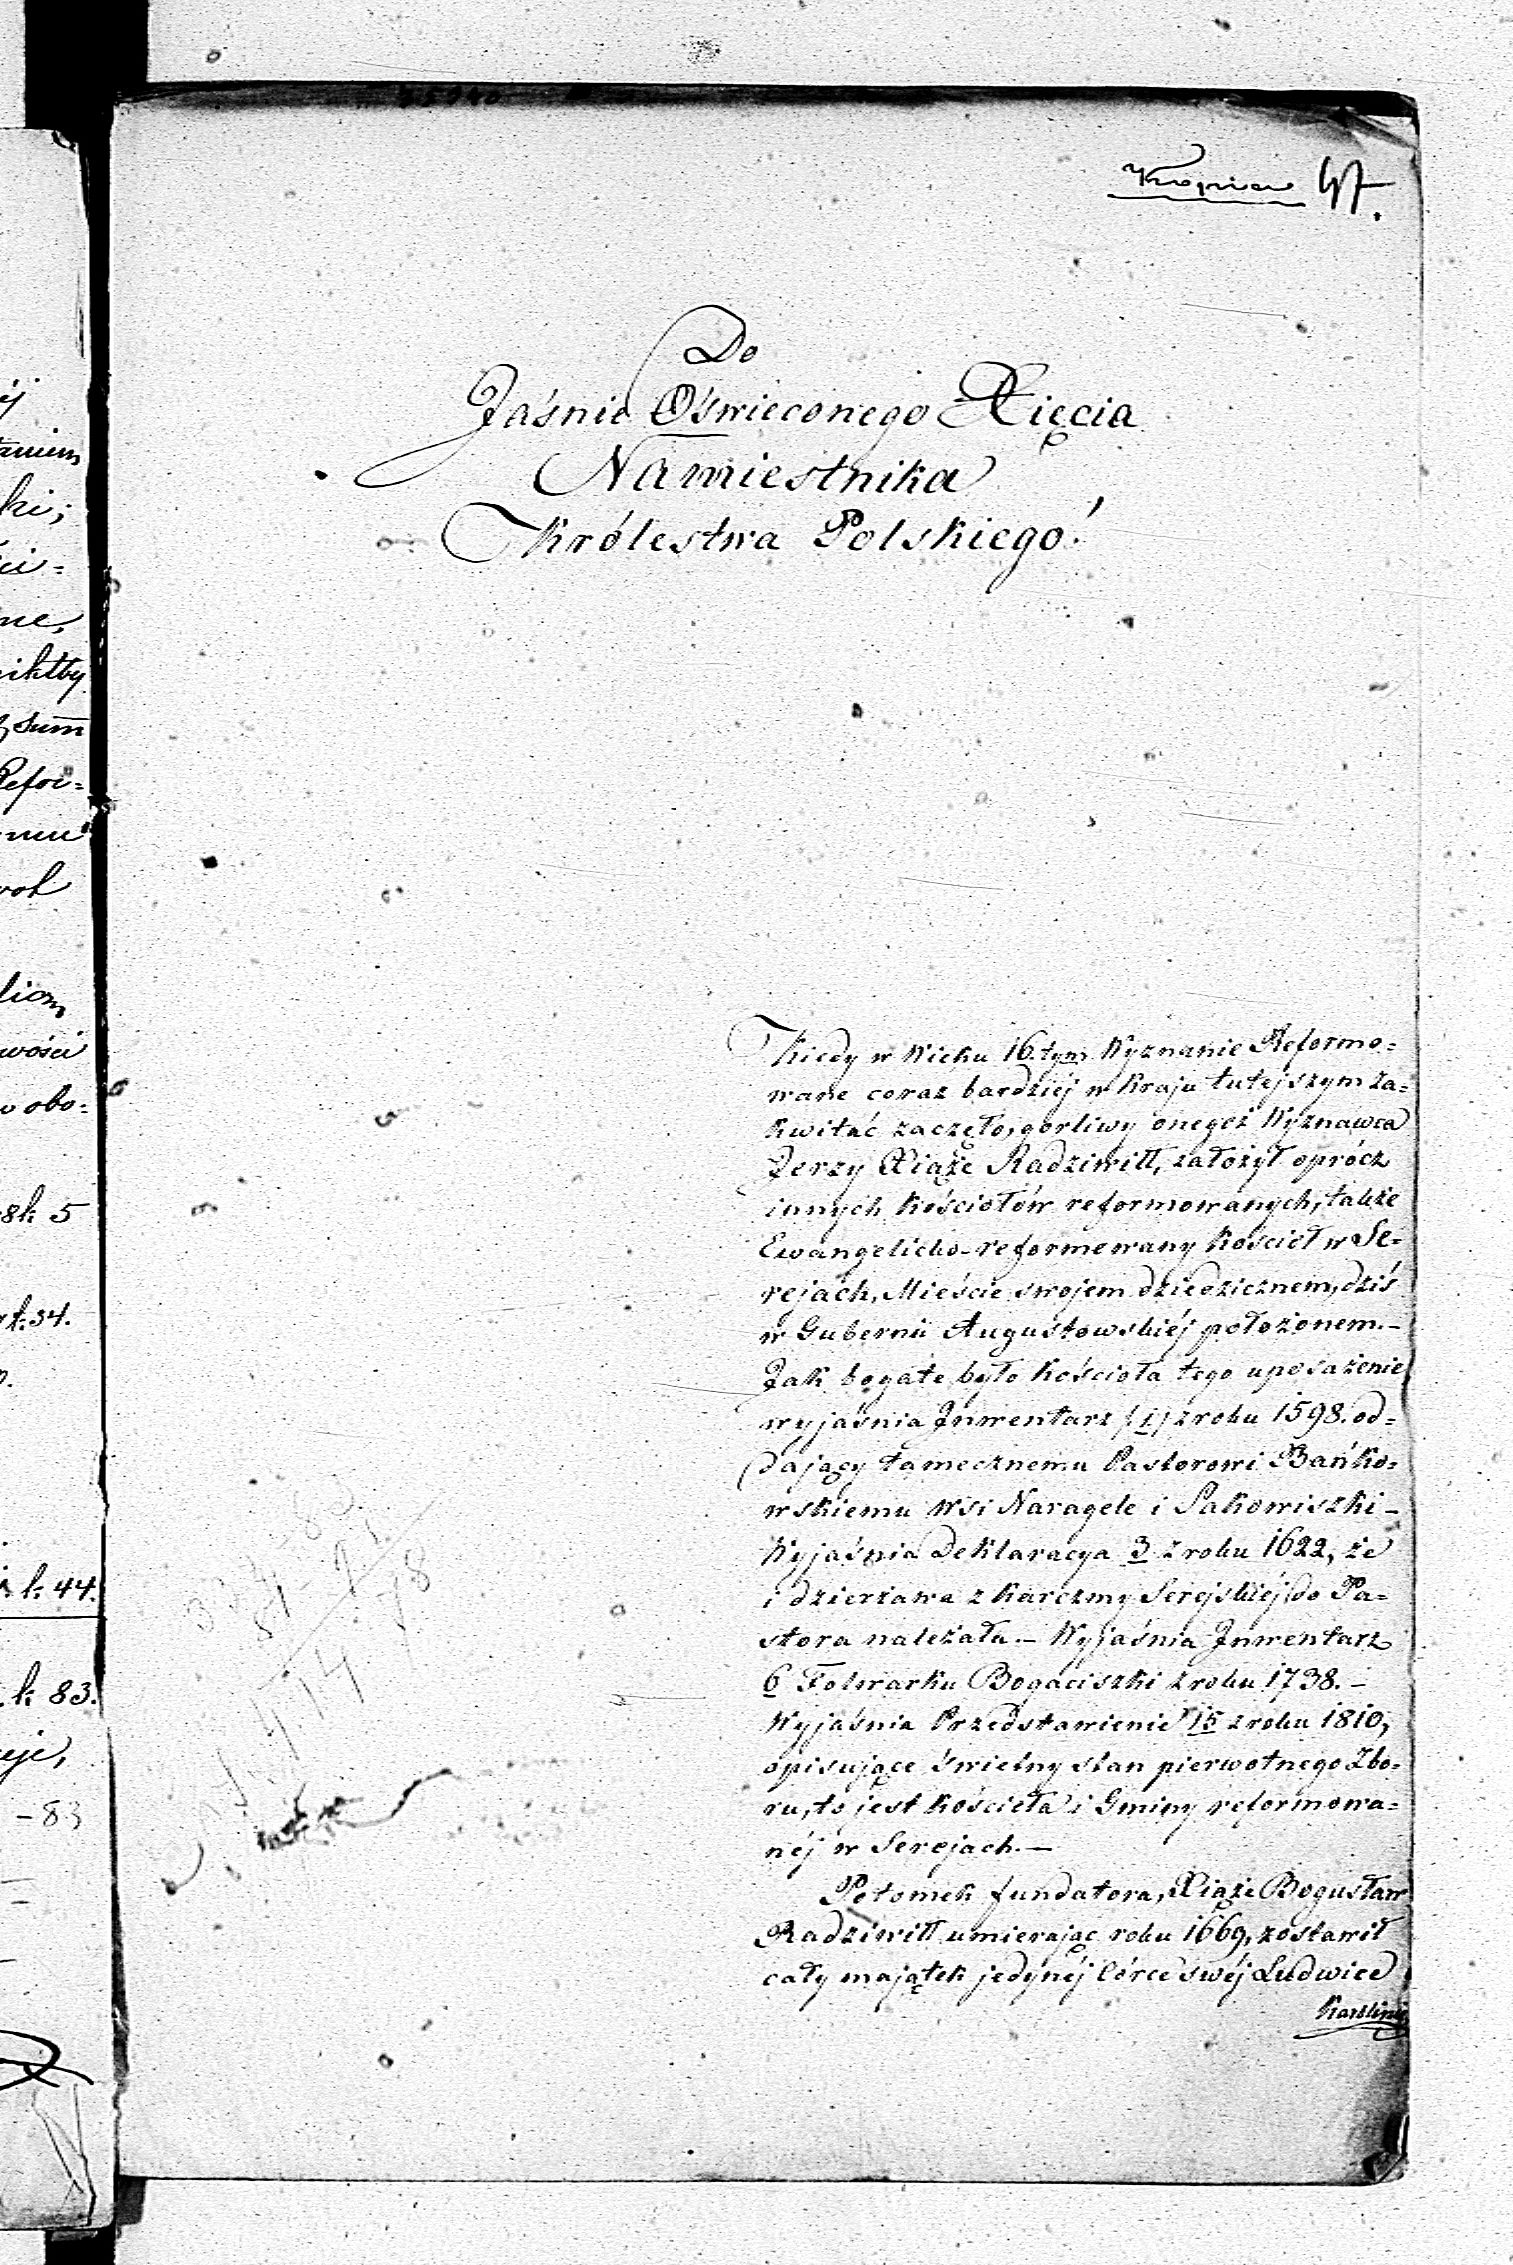 47.
Do
Jaśnie Oświeconego Xięcia
Namiestnika
Królestwa Polskiego!
Kiedy w Wieku 16.tym Wyznanie Reformo=
wane coraz bardziéj w Kraju tutejszym za=
kwitać zaczęło, gorliwy onegoż Wyznawca
Jerzy Xiąże Radziwiłł, założył oprócz
innych Kościołów reformowanych, także
Ewangelicko-reformowany Kościoł w Se=
rejach, Mieście swojem dziedzicznem, dziś
w Gubernii Augustowskiéj położonem.-
Jak bogate było Kościoła tego uposażenie
wyjaśnia Inwentarz (1) z roku 1598. od=
dający tamecznemu Pastorowi Bańko=
wskiemu Wsi Naragele i Pakowiszki -
Wyjaśnia Deklaracya 3 z roku 1622, że
i dzierżawa z Karczmy Serejskiéj do Pa=
stora należała. - Wyjaśnia Inwentarz
6 Folwarku Bogaciszki z roku 1738. -
Wyjaśnia Przedstawienie 15 z roku 1810,
opisujące świetny stan pierwotnego Zbo=
ru, to jest Kościoła i Gminy reformowa=
néj w Serejach. -
Potomek fundatora, Xiąże Bogusław
Radziwiłł umierając roku 1669, zostawił
cały majątek jedynéj Córce swéj Ludwice
Karolinie
ki;
ne,
summ
Refor=
obo=
k. 5
k. 34.
k. 44.
k. 83.
- 83